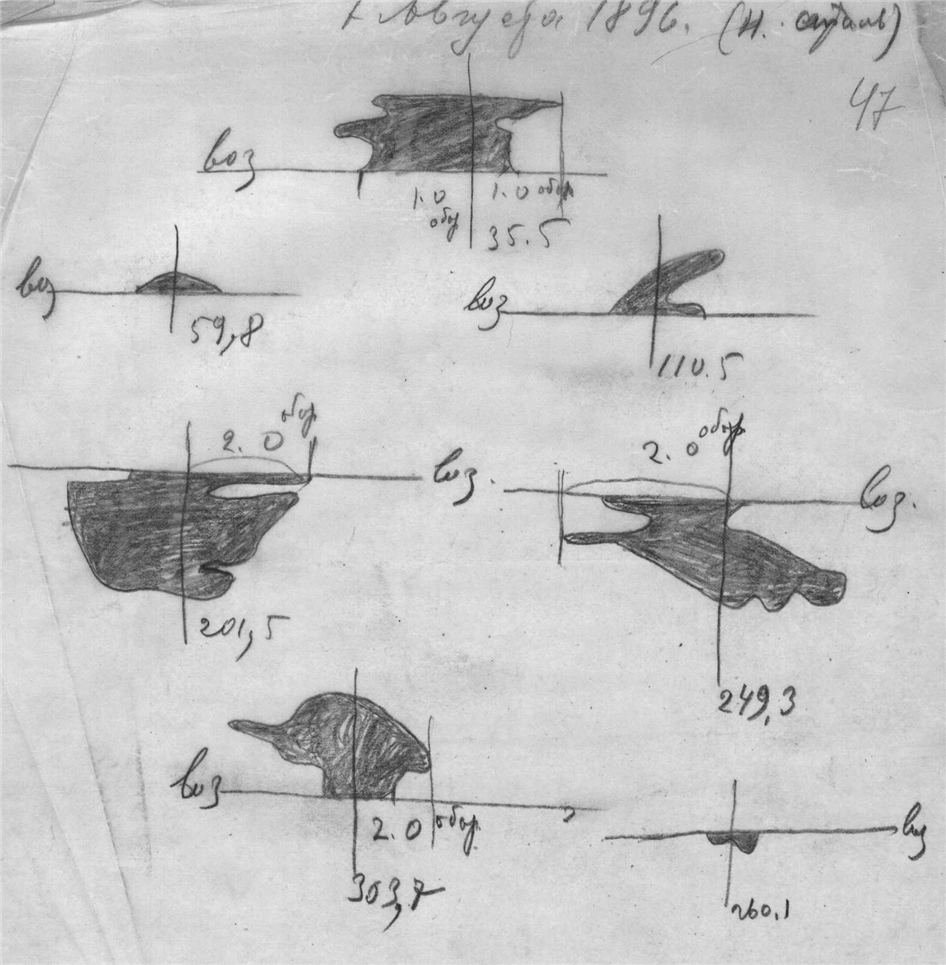 Августа 1896. (н. стиль)
47
воз
1.0 1.0 обор
обор
35.5
воз
59,8
воз
110.5
2.0 обор
воз.
201,5
2.0 обор
воз.
249,3
воз
2.0 обор
303,7
воз
260.1